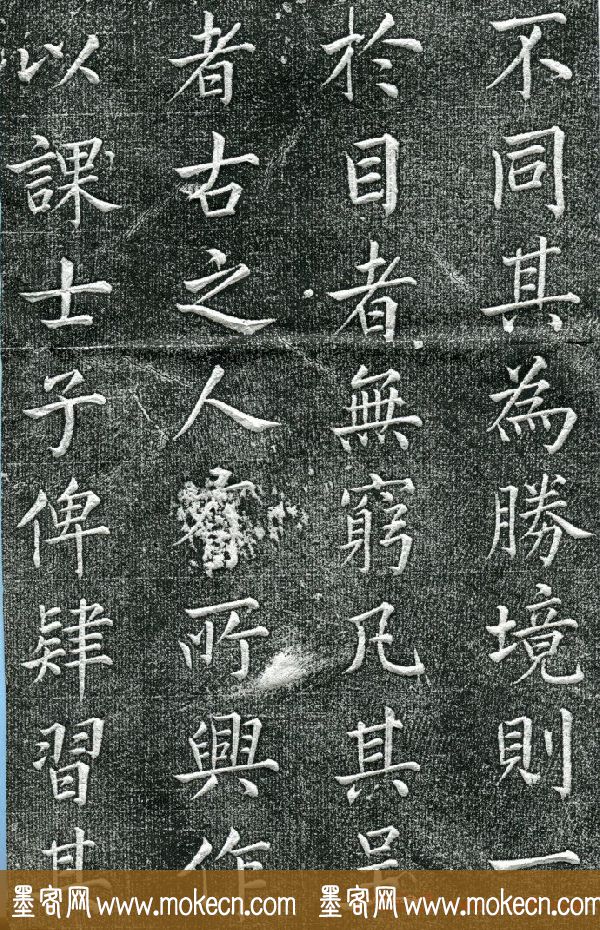 不同其為勝境則一
於目者無窮凡其呈
者古之人有所興作
以課士子俾肄習其
墨客网 www.mokecn.com 墨客网 www.mokecn.com